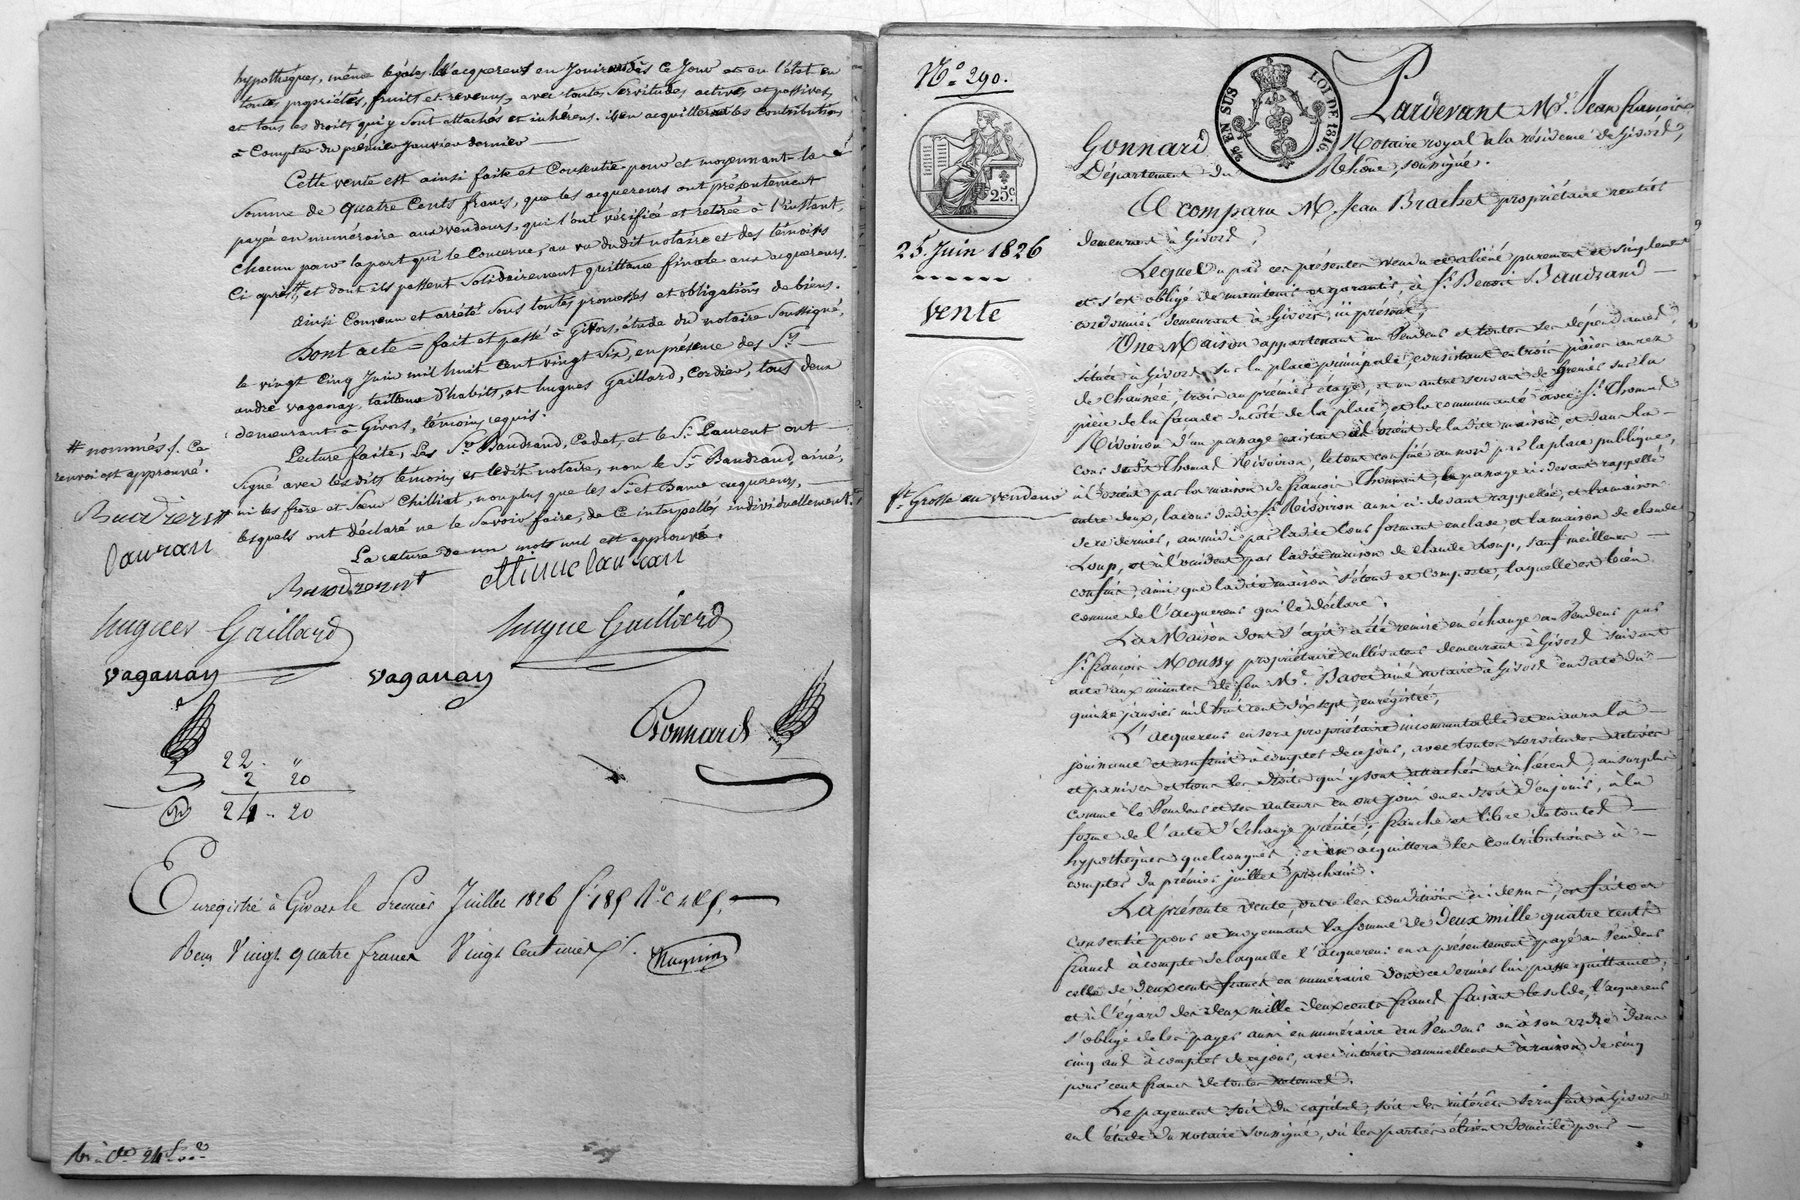 hypothèques, même légales. Les acquereurs en Jouiront dès ce Jour et en l'état en
toutes propriétés, fruits et revenus, avec toutes Servitudes actives et passives,
et tous les droits qui y sont attachés et inhérens. ils en acquitteront les contributions
à Compter du premier Janvier dernier —
Cette vente est ainsi faite et Consentie pour et moyennant la
Somme de quatre Cents francs, que les acquereurs ont présentement
payée en numéraire aux vendeurs, qui l'ont vérifiée et retirée à l'instant,
chacun pour la part qui le Concerne, au vu dudit notaire et des témoins
Ci après #, et dont ils passent Solidairement quittance finale aux acquereurs.
Ainsi Convenu et arrêté Sous toutes promesses et obligations de biens.
Dont acte = fait et passé à Givors, étude du notaire Soussigné,
le vingt Cinq Juin mil huit Cent vingt Six, en présence des Srs —
andré vaganay, tailleur d'habits, et hugues Gaillard, Cordier, tous deux
demeurant à Givors, témoins requis.
Lecture faite, Les Srs Baudrand, Cadet, et le Sr Laurent ont —
Signé avec lesdits témoins et ledit notaire, non le Sr Baudrand, ainé,
ni les frère et Sœur Chilliat, non plus que les Sr et Dame acquereurs,
lesquels ont déclaré ne le Savoir faire, de Ce interpellés individuellement.
La rature de un mots nul est approuvé.
# nommés /. Ce
renvoi est approuvé.
hugues Gaillard
hugue Gaillard
vaganay
vaganay
Gonnard
22 - "
2 20
24 - 20
Enregistré à Givors le Premier Juillet 1826 fo 185
Reçu Vingt quatre francs Vingt Centimes
No 290.
25 EN SUS
LOI DE 1816.
25c.
25 Juin 1826
vente
fte Grosse au vendeur
Pardevant Me Jean françois
Gonnard Notaire royal à la résidence de Givors,
Département du Rhône, soussigné.
A comparu M. Jean Brachet propriétaire rentier
demeurant à Givors,
Lequel a par ces présentes vendu et aliéné purement et simplement
et s'est obligé de maintenir et garantir, à Sr Benoit Baudrand —
cordonnier demeurant à Givors, ici présent,
Une Maison appartenant au Vendeur et toutes ses dépendances,
située à Givors, sur la place principale, consistant en trois pièces au rez
de chaussée, trois au premier étage, et un autre servant de grenier sur la
pièce de la façade du côté de la place, et la communauté avec Sr Thomas
Rivoiron d'un passage existant à l'orient de ladite maison, et dans la
cour dudit Thomas Rivoiron, le tout confiné au nord par la place publique,
à l'orient par la maison de françois Thomas, le passage ci devant rappellé
entre deux, la cour dudit Sr Rivoiron aussi ci devant rappellée, et la maison
de ce dernier, au midi par ladite cour formant enclave et la maison de claude
Loup, et à l'occident par ladite maison de claude Loup, sauf meilleurs —
confins, ainsi que ladite maison s'étend et comporte, laquelle est bien
connue de l'acquereur qui le déclare.
La Maison dont s'agit a été remise en échange au Vendeur par
Sr françois Moussy propriétaire cultivateur demeurant à Givors suivant
acte aux minutes de feu Me Bavoz ainé notaire à Givors en date du —
quinze janvier mil huit cent dix sept, enregistré,
L'acquereur en sera propriétaire incommutable et en aura la —
jouissance et usufruit à compter de ce jour, avec toutes servitudes actives
et passives et tous les droits qui y sont attachés et inhérens, au surplus
comme le Vendeur et ses auteurs en ont joui ou eu droit d'en jouir, à la
forme de l'acte d'échange précité, franche et libre de toutes —
hypothèques quelconques, et en acquittera les contributions à —
compter du premier juillet prochain.
La présente vente, outre les conditions ci dessus, est faite et
consentie pour et moyennant la somme de deux mille quatre cents
francs à compte de laquelle l'acquereur en a présentement payé au Vendeur
celle de deux cents francs en numéraire dont ce dernier lui passe quittance,
et à l'égard des deux mille deux cents francs faisant le solde, l'acquereur
s'oblige de les payer aussi en numéraire au Vendeur ou à son ordre dans
cinq ans à compter de ce jour, avec intérêts annuellement à raison de cinq
pour cent francs de toutes retenues.
Le payement soit du capital, soit des intérêts sera fait à Givors
en l'étude du notaire soussigné, où les parties élisent domicile pour —